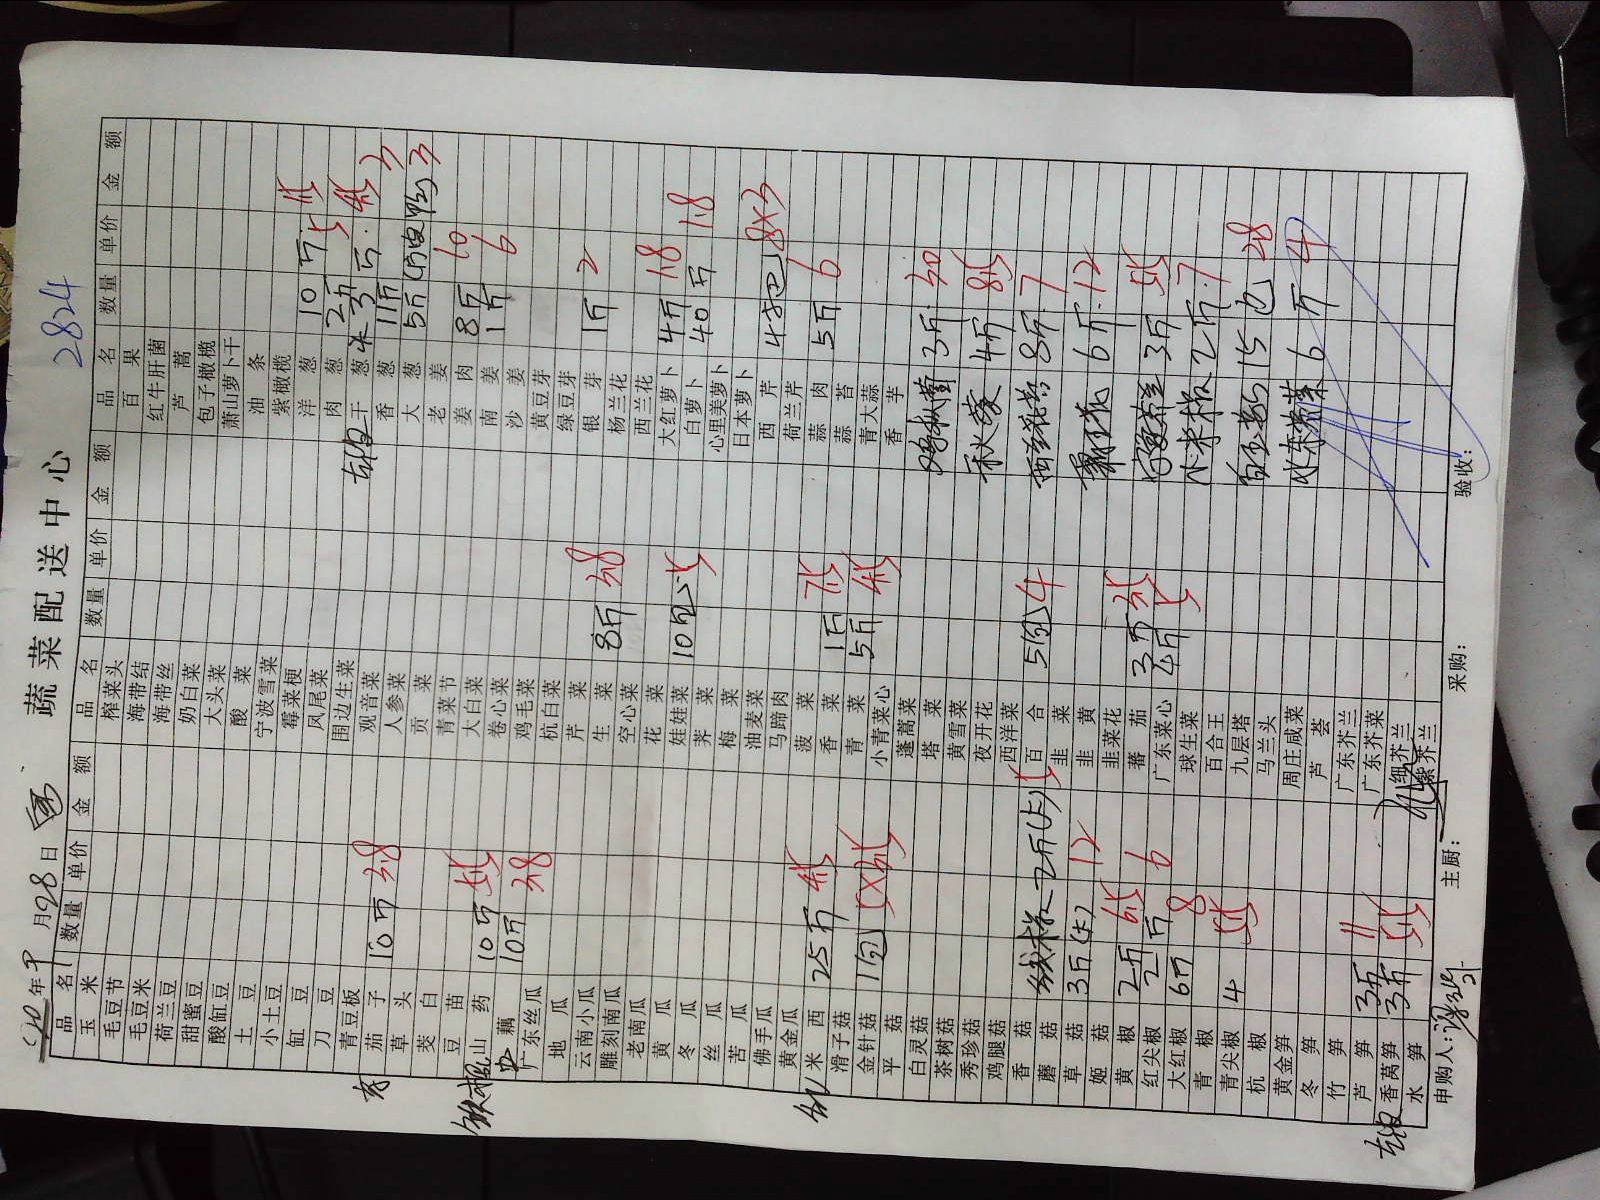 蔬菜配送中心
2824
年9月28日
品名 数量 单价 金额
玉米
毛豆节
毛豆米
荷兰豆
甜蜜豆
酸缸豆
土豆
小土豆
缸豆
刀豆
青豆板
茄子 10斤 3.8
草头
茭白
豆苗
铁棍山药 10斤
藕 10斤 3.8
广东丝瓜
地瓜
云南小瓜
雕刻南瓜
老南瓜
黄瓜
冬瓜
丝瓜
苦瓜
佛手瓜
黄金瓜
米西 25斤
滑子菇
金针菇 1包
平菇
白灵菇
茶树菇
秀珍菇
鸡腿菇
香菇
蘑菇 2斤(大)
草菇 3斤(大) 12
姬菇
黄椒 2斤 6.5
红尖椒 2斤 6
大红椒 6斤 8
青椒
青尖椒 4 5.5
杭椒
黄金笋
冬笋
竹笋
芦笋 3斤 11
香莴笋 3斤 5.5
水笋
品名 数量 单价 金额
榨菜头
海带结
海带丝
奶白菜
大头菜
酸菜
宁波雪菜
霉菜梗
凤尾菜
围边生菜
观音菜
人参菜
贡菜
青菜节
大白菜
卷心菜
鸡毛菜
杭白菜
芹菜
生菜 8斤 3.8
空心菜
花菜
娃娃菜 10包 5
荠菜
梅菜
油麦菜
马蹄肉
菠菜
香菜 1斤 7.5
青菜 5斤 4.5
小青菜心
蓬蒿菜
塔菜
黄雪菜
夜开花
西洋菜
百合 5包 4
韭菜
韭黄
韭菜花
蕃茄 3斤 3.5
广东菜心 4斤 5
球生菜
百合王
九层塔
马兰头
周庄咸菜
芦荟
广东芥兰
广东芥菜
细芥兰
紫芥兰
品名 数量 单价 金额
百果
红牛肝菌
芦蒿
包子橄榄
萧山萝卜干
油条
紫橄榄
洋葱 10斤
肉葱 2斤 5
干葱 3斤 4.5
香葱 1斤 3
大葱 5斤 3
老姜
姜肉 8斤 10
南姜 1斤 6
沙姜
黄豆芽
绿豆芽
银芽 1斤 2
杨兰花
西兰花
大红萝卜 4斤 1.8
白萝卜 40斤 1.8
心里美萝卜
日本萝卜
西芹 8X3
荷兰芹
蒜肉 5斤 6
蒜苔
青大蒜
香芋
3斤 30
秋葵 4斤 8.5
8斤 7
6斤 12
3斤 5.5
小米椒 2斤 7
白玉菇 15包 28
6斤 4
申购人:
主厨:
采购:
验收: